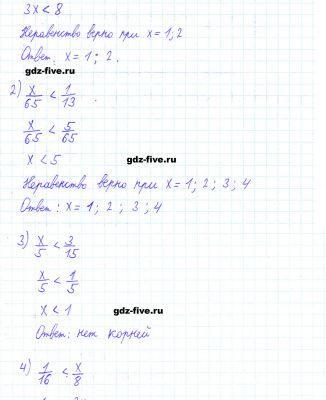 3x < 8
Неравенство верно при x = 1; 2
Ответ: x = 1; 2.
gdz-five.ru
2) x/65 < 1/13
x/65 < 5/65
x < 5
gdz-five.ru
Неравенство верно при x = 1; 2; 3; 4
Ответ: x = 1; 2; 3; 4
3) x/5 < 3/15
x/5 < 1/5
x < 1
gdz-five.ru
Ответ: нет корней
4) 1/16 < x/8
gdz-five.ru